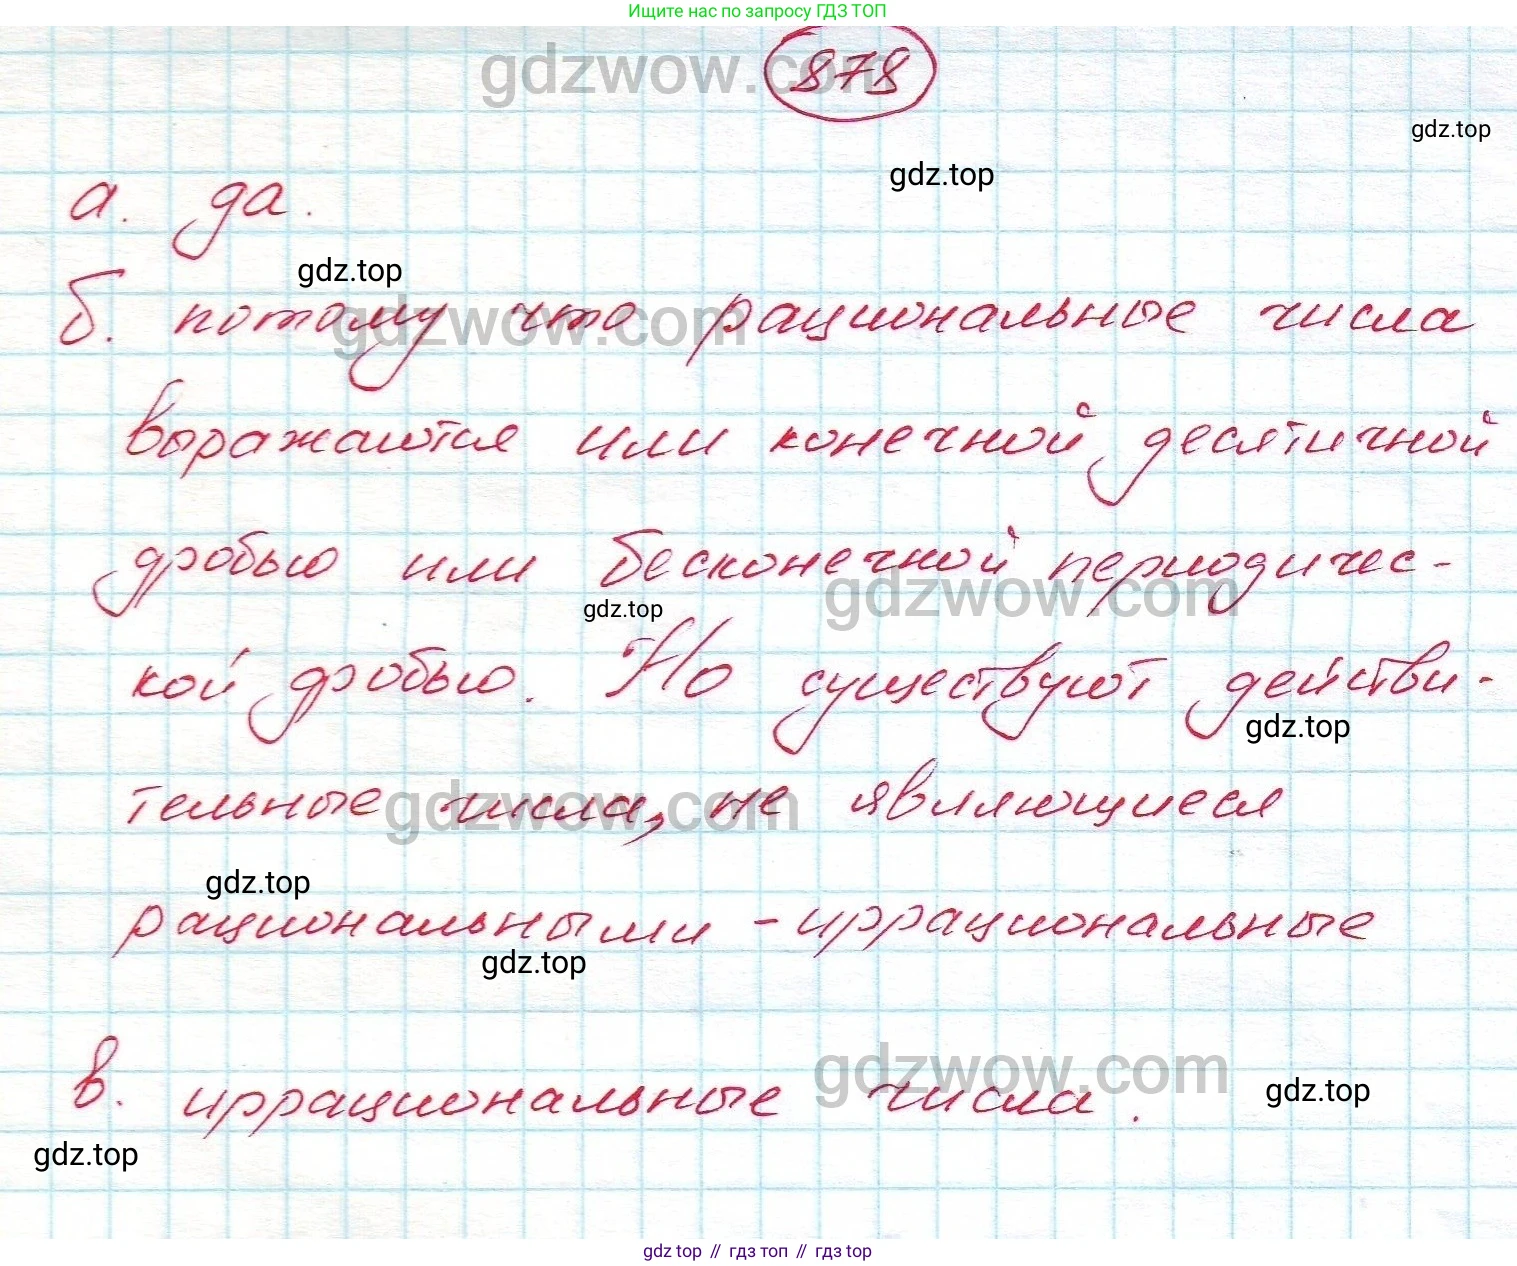 Ищите нас по запросу ГДЗ ТОП
gdzwow.com
878
gdz.top
gdz.top
а. да.
gdz.top
б. потому что рациональные числа
gdzwow.com
выражаются или конечной десятичной
дробью или бесконечной периодичес-
gdzwow.com
gdz.top
кой дробью. Но существуют действи-
gdz.top
тельные числа, не являющиеся
gdzwow.com
gdz.top
рациональными - иррациональные
gdz.top
в. иррациональные числа.
gdzwow.com
gdz.top
gdz.top
gdz top // гдз топ // гдз top